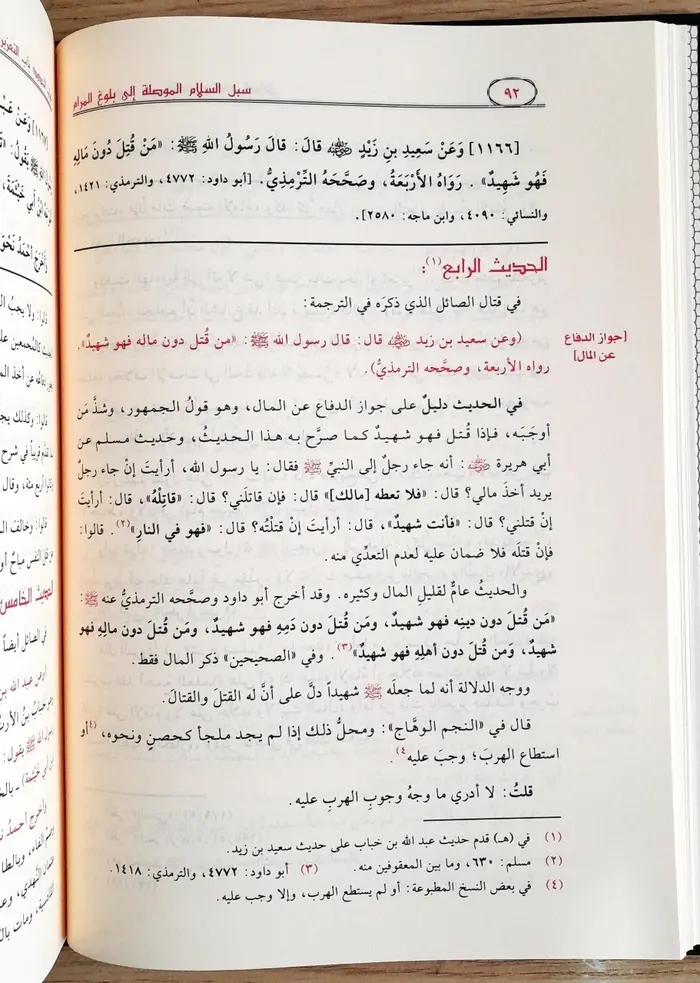 ٩٢
سبل السلام الموصلة إلى بلوغ المرام
[١١٦٦] وَعَنْ سَعِيدِ بنِ زَيْدٍ رضي الله عنه قالَ: قالَ رَسُولُ اللهِ ﷺ: «مَنْ قُتِلَ دُونَ مَالِهِ
فَهُو شَهِيدٌ». رَوَاهُ الأَرْبَعَةُ، وصَحَّحَهُ التِّرْمِذِيُّ. [أبو داود: ٤٧٧٢، والترمذي: ١٤٢١،
والنسائي: ٤٠٩٠، وابن ماجه: ٢٥٨٠].
الحديث الرابع(١):
في قتال الصائل الذي ذكرَه في الترجمة:
[جواز الدفاع عن المال]
(وعن سعيد بن زيد رضي الله عنه قال: قال رسول الله ﷺ: «من قُتل دون ماله فهو شهيدٌ».
رواه الأربعة، وصحَّحه الترمذيُّ).
في الحديث دليلٌ على جواز الدفاع عن المال، وهو قولُ الجمهور، وشذَّ مَن
أوجَبَه، فإذا قُتل فهو شهيدٌ كما صرَّح به هذا الحديثُ، وحديث مسلم عن
أبي هريرة رضي الله عنه: أنه جاء رجلٌ إلى النبيِّ ﷺ فقال: يا رسول الله، أرأيتَ إنْ جاء رجلٌ
يريد أخذَ مالي؟ قال: «فلا تعطه [مالك]» قال: فإن قاتلَني؟ قال: «قاتِلْهُ»، قال: أرأيتَ
إنْ قتلني؟ قال: «فأنت شهيدٌ»، قال: أرأيتَ إنْ قتلْتُه؟ قال: «فهو في النارِ»(٢). قالوا:
فإنْ قتلَه فلا ضمان عليه لعدم التعدِّي منه.
والحديثُ عامٌّ لقليلِ المال وكثيرِه. وقد أخرج أبو داود وصحَّحه الترمذيُّ عنه ﷺ:
«مَن قُتل دون دينِه فهو شهيدٌ، ومَن قُتل دون دَمِه فهو شهيدٌ، ومَن قُتل دون مالِهِ فهو
شهيدٌ، وَمن قُتل دون أهلِهِ فهو شهيدٌ»(٣). وفي «الصحيحين» ذكر المال فقط.
ووجه الدلالة أنه لما جعلَه ﷺ شهيداً دلَّ على أنَّ له القتلَ والقتالَ.
قال في «النجم الوهَّاج»: ومحلُّ ذلك إذا لم يجد ملجأ كحصنٍ ونحوه، (٤)أو
استطاع الهربَ؛ وجبَ عليه(٤).
قلتُ: لا أدري ما وجهُ وجوبِ الهربِ عليه.
(١) في (هـ) قدم حديث عبد الله بن خباب على حديث سعيد بن زيد.
(٢) مسلم: ٦٣٠، وما بين المعقوفين منه. (٣) أبو داود: ٤٧٧٢، والترمذي: ١٤١٨.
(٤) في بعض النسخ المطبوعة: أو لم يستطع الهرب، وإلا وجب عليه.